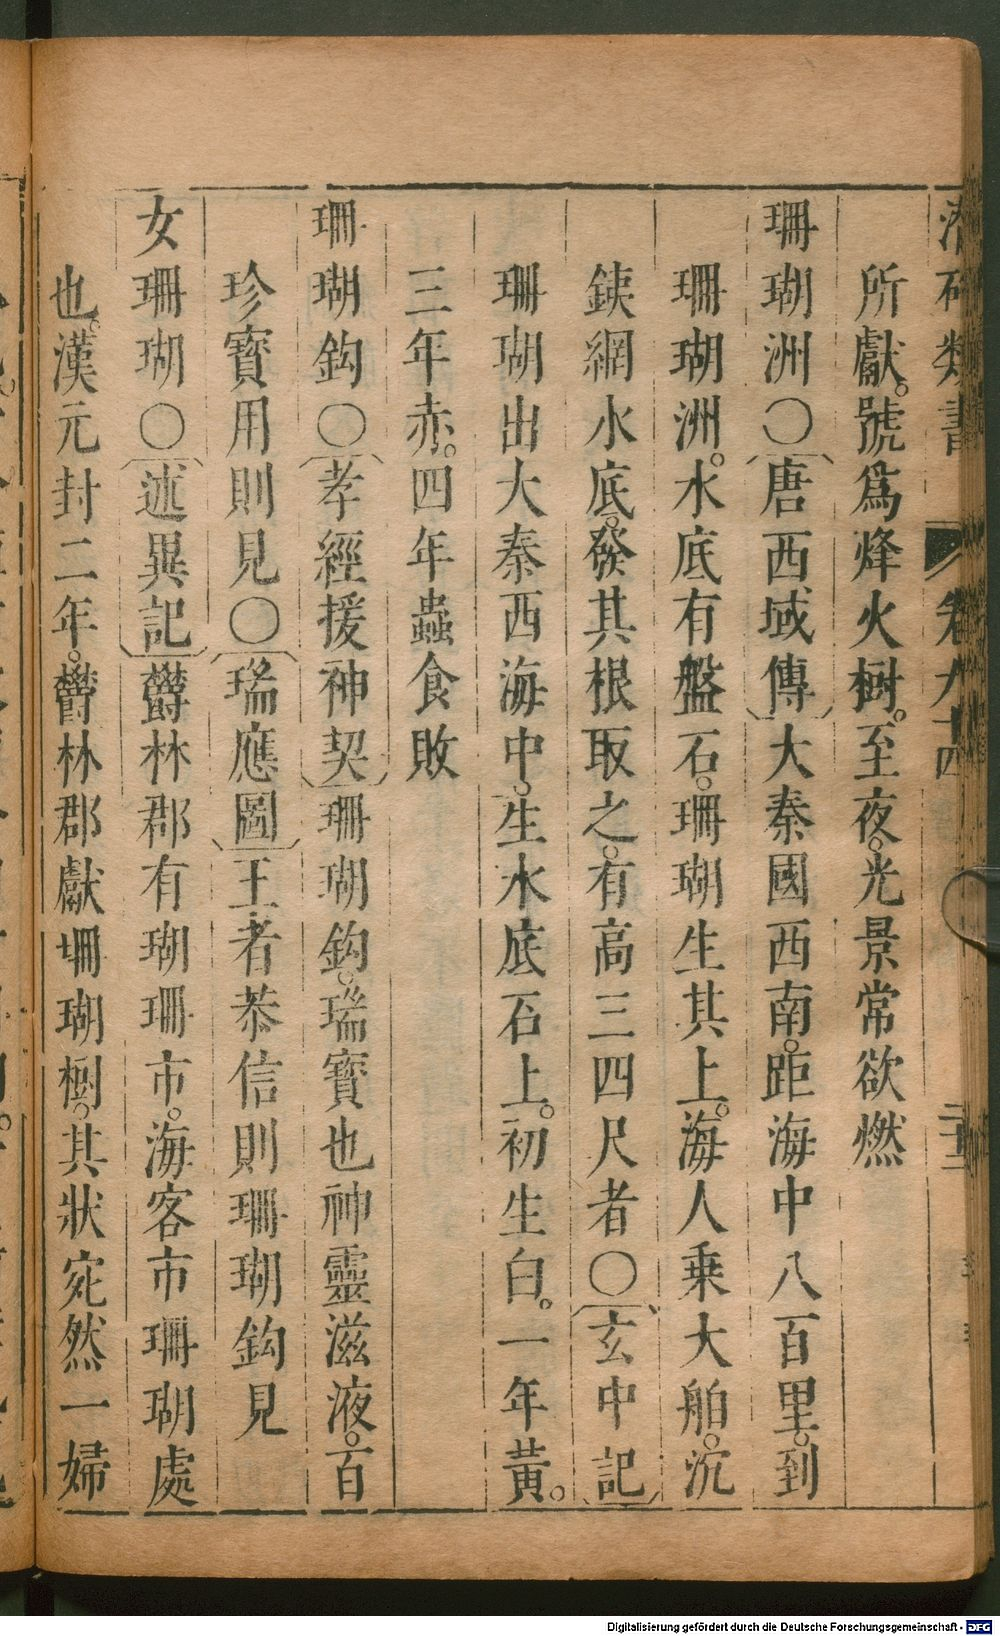 潛确類書 卷九十四
所獻。號爲烽火樹。至夜。光景常欲燃
珊瑚洲〇〔唐西域傳〕大秦國西南。距海中八百里。到
珊瑚洲。水底有盤石。珊瑚生其上。海人乗大舶。沉
鐵網水底。發其根取之。有高三四尺者〇〔玄中記〕
珊瑚出大秦西海中。生水底石上。初生白。一年黃。
三年赤。四年蟲食敗
珊瑚鈎〇〔孝經援神契〕珊瑚鈎。瑞寳也神靈滋液。百
珍寳用則見〇〔瑞應圖〕王者恭信則珊瑚鈎見
女珊瑚〇〔述異記〕欝林郡有瑚珊市。海客市珊瑚處
也。漢元封二年。欝林郡獻珊瑚樹。其狀宛然一婦
Digitalisierung gefördert durch die Deutsche Forschungsgemeinschaft - DFG